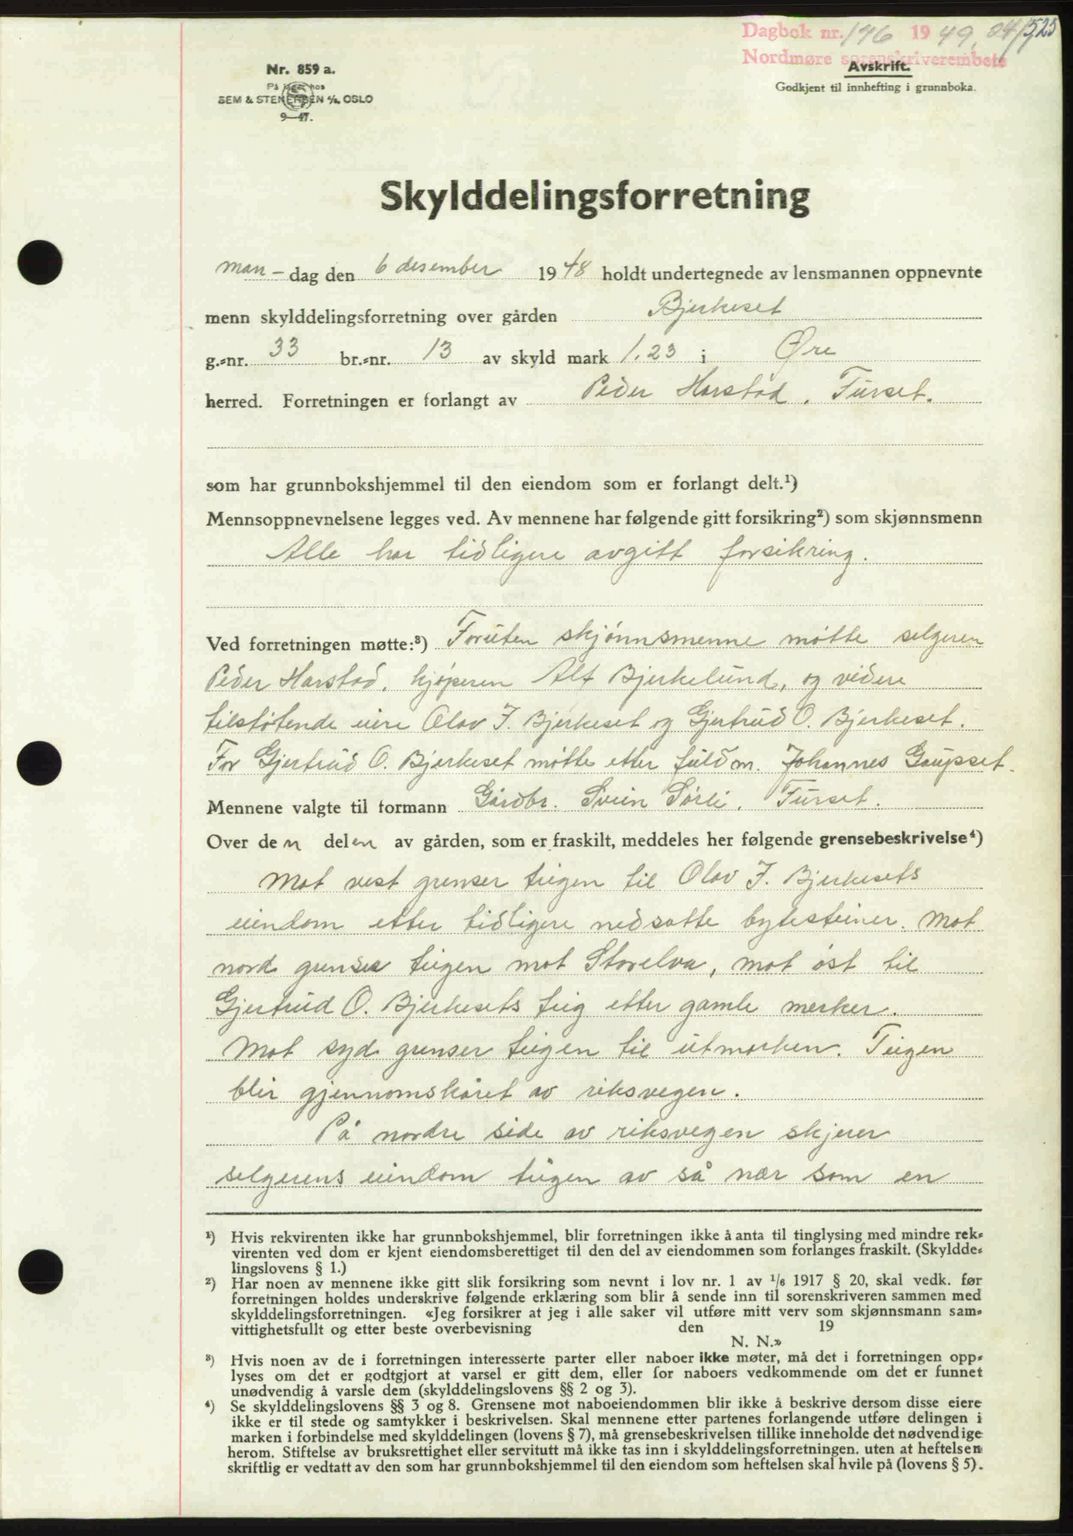 525
Dagbok nr. 196 1949, 24/1
Nordmøre sorenskriverembete
Avskrift.
Godkjent til innhefting i grunnboka.
Nr. 859 a.
På lager hos
SEM & STENERSEN A/S, OSLO
9—47.
Skylddelingsforretning
man - dag den 6 desember 1948 holdt undertegnede av lensmannen oppnevnte
menn skylddelingsforretning over gården Bjerkeset
g.-nr. 33 br.-nr. 13 av skyld mark 1,23 i Øre
herred. Forretningen er forlangt av Peder Harstad, Furset.
som har grunnbokshjemmel til den eiendom som er forlangt delt.¹)
Mennsoppnevnelsene legges ved. Av mennene har følgende gitt forsikring²) som skjønnsmenn
Alle har tidligere avgitt forsikring.
Ved forretningen møtte:³) Foruten skjønnsmenne møtte selgeren
Peder Harstad, kjøperen Alf Bjerkelund, og videre
tilstøtende eiere Olav J. Bjerkeset og Gjertrud O. Bjerkeset.
For Gjertrud O. Bjerkeset møtte etter fuldm. Johannes Gaupset.
Mennene valgte til formann Gårdbr. Svein Sørli, Furset.
Over den delen av gården, som er fraskilt, meddeles her følgende grensebeskrivelse⁴)
Mot vest grenser teigen til Olav J. Bjerkesets
eiendom etter tidligere nedsatte bytesteiner. Mot
nord grenser teigen mot Storelva, mot øst til
Gjertrud O. Bjerkesets teig etter gamle merker.
Mot syd grenser teigen til utmarken. Teigen
blir gjennomskåret av riksvegen.
På nordre side av riksvegen skjerer
selgerens eiendom teigen av så nær som en
¹) Hvis rekvirenten ikke har grunnbokshjemmel, blir forretningen ikke å anta til tinglysing med mindre rek-
virenten ved dom er kjent eiendomsberettiget til den del av eiendommen som forlanges fraskilt. (Skyldde-
lingslovens § 1.)
²) Har noen av mennene ikke gitt slik forsikring som nevnt i lov nr. 1 av 1/6 1917 § 20, skal vedk. før
forretningen holdes underskrive følgende erklæring som blir å sende inn til sorenskriveren sammen med
skylddelingsforretningen. «Jeg forsikrer at jeg i alle saker vil utføre mitt verv som skjønnsmann sam-
vittighetsfullt og etter beste overbevisning den 19
N. N.»
³) Hvis noen av de i forretningen interesserte parter eller naboer ikke møter, må det i forretningen opp-
lyses om det er godtgjort at varsel er gitt dem, eller for naboers vedkommende om det er funnet
unødvendig å varsle dem (skylddelingslovens §§ 2 og 3).
⁴) Se skylddelingslovens §§ 3 og 8. Grensene mot naboeiendommen blir ikke å beskrive dersom disse eiere
ikke er til stede og samtykker i beskrivelsen. Skal mennene etter partenes forlangende utføre delingen i
marken i forbindelse med skylddelingen (lovens § 7), må grensebeskrivelsen tillike inneholde det nødvendige
herom. Stiftelse av bruksrettighet eller servitutt må ikke tas inn i skylddelingsforretningen, uten at heftelsen
skriftlig er vedtatt av den som har grunnbokshjemmel til den eiendom som heftelsen skal hvile på (lovens § 5).